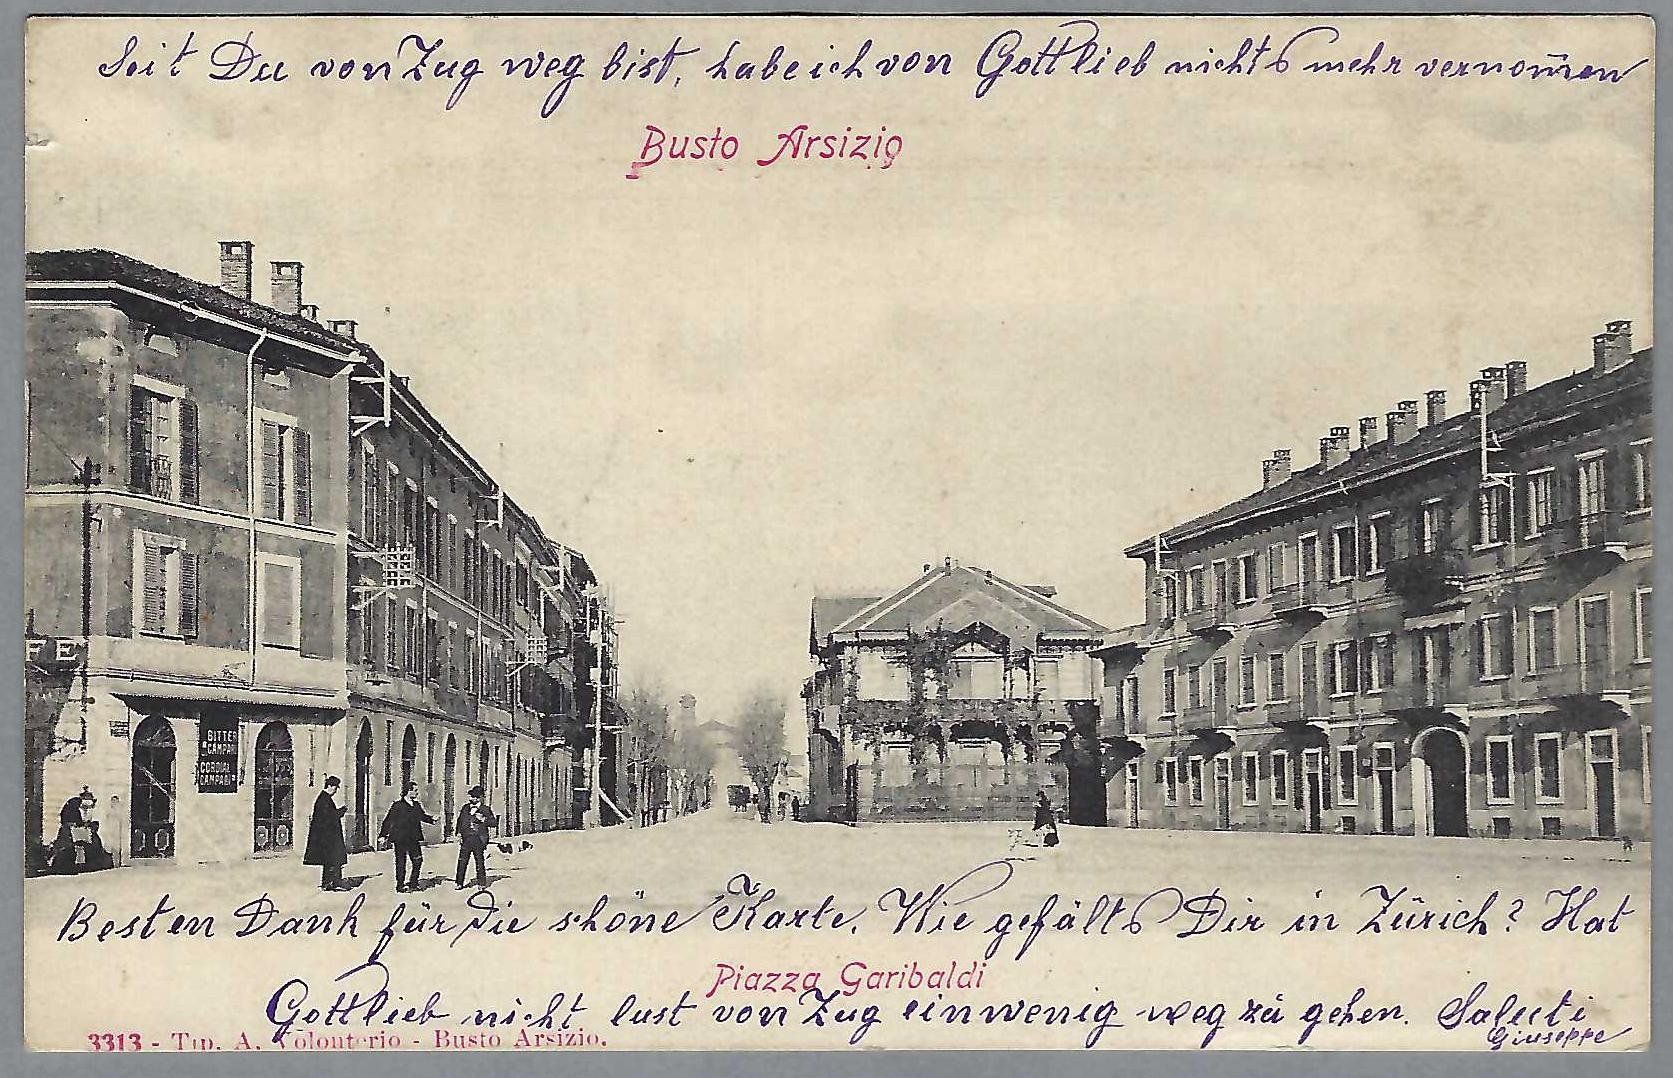 Seit Du von Zug weg bist, habe ich von Gottlieb nichts mehr vernom̄en
Busto Arsizio
FE
BITTER
CAMPARI
CORDIAL
CAMPARI
Besten Dank für die schöne Karte. Wie gefälts Dir in Zürich? Hat
Piazza Garibaldi
Gottlieb nicht lust von Zug einwenig weg zu gehen. Saluti
Giuseppe
3313 - Tip. A. Volonterio - Busto Arsizio.